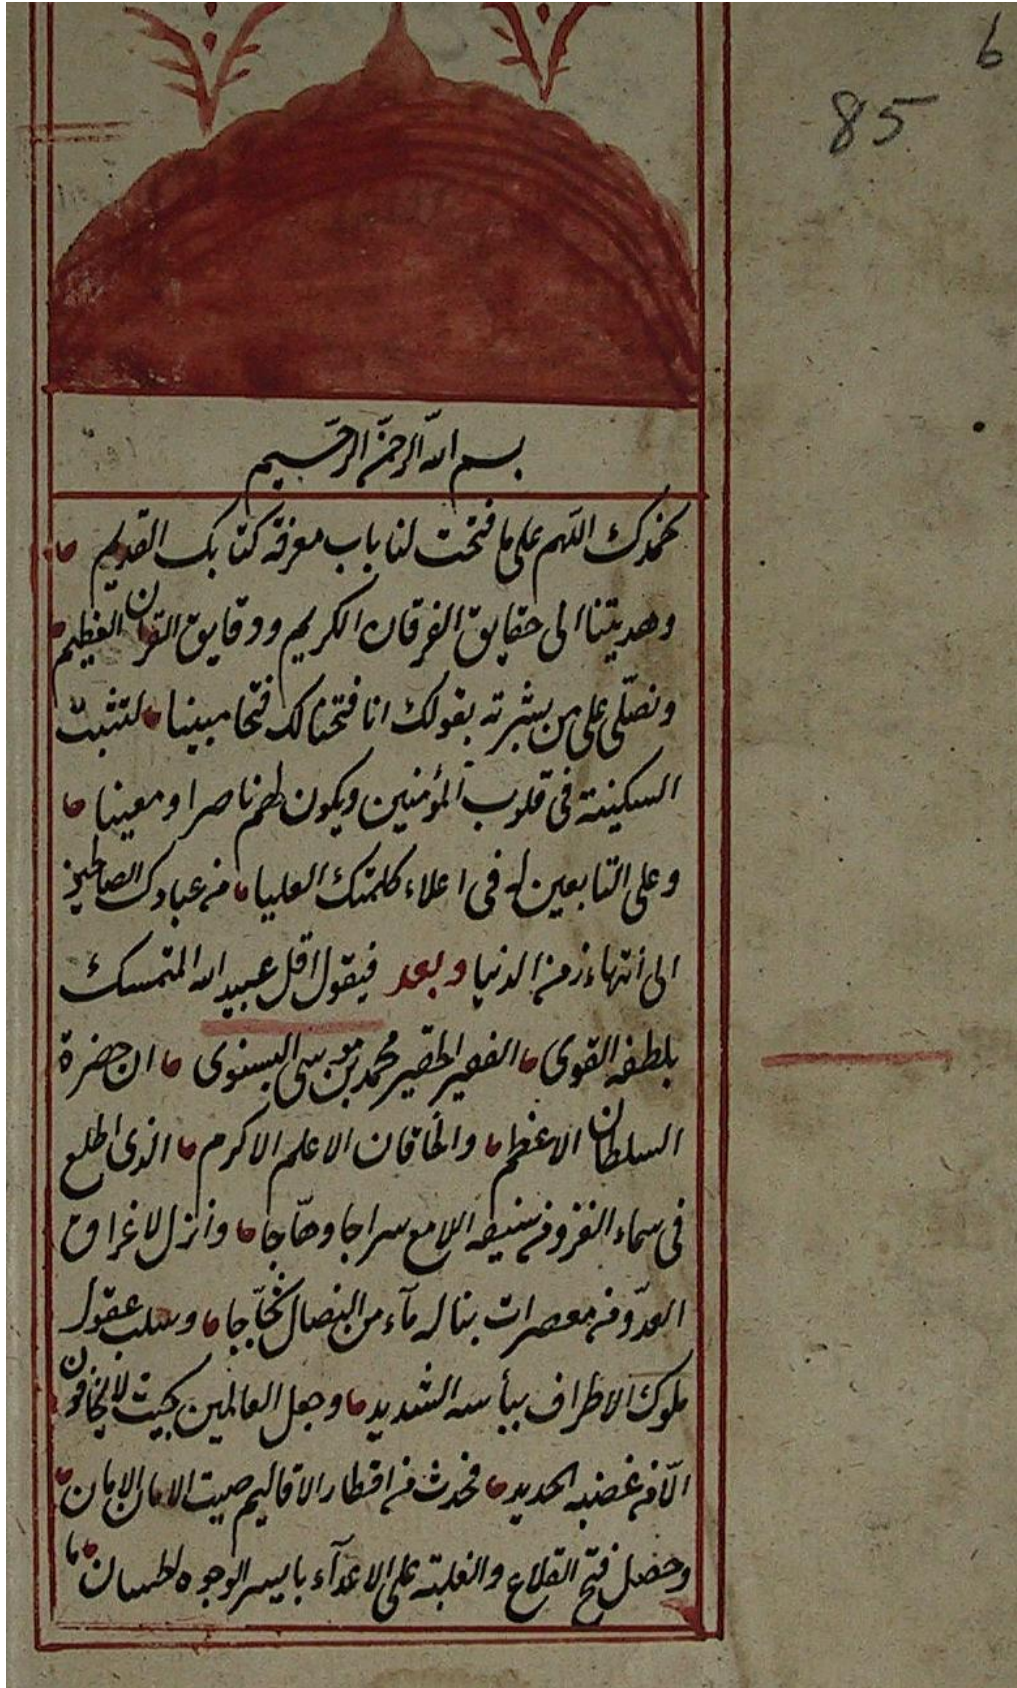 6
85
بسم الله الرحمن الرحيم
نحمدك اللهم على ما فتحت لنا باب معرفة كتابك القديم
وهديتنا الى حقايق الفرقان الكريم ودقايق القرآن العظيم
ونصلّى على من بشرته بقولك انا فتحنا لك فتحا مبينا لتثبت
السكينة فى قلوب المؤمنين ويكون لهم ناصرا ومعينا
وعلى التابعين له فى اعلاء كلمتك العليا من عبادك الصالحين
الى أنتهاء زمن الدنيا وبعد فيقول اقل عبيد الله المتمسك
بلطفه القوى الفقير الحقير محمد بن موسى البسنوى ان حضرة
السلطان الاعظم والخاقان الاعلم الاكرم الذى اطلع
فى سماء الغزو من سيفه اللامع سراجا وهّاجا وأنزل لاغراق
العدّو من معصرات بناله مآء من النصال ثجّاجا وسلب عقول
ملوك الاطراف ببأسه الشديد وجعل العالمين بحيث لا يخافون
الّا من غضبه الحديد فحدث من اقطار الاقاليم صيت الامان الامان
وحصل فتح القلاع والغلبة على الاعدآء بايسر الوجوه